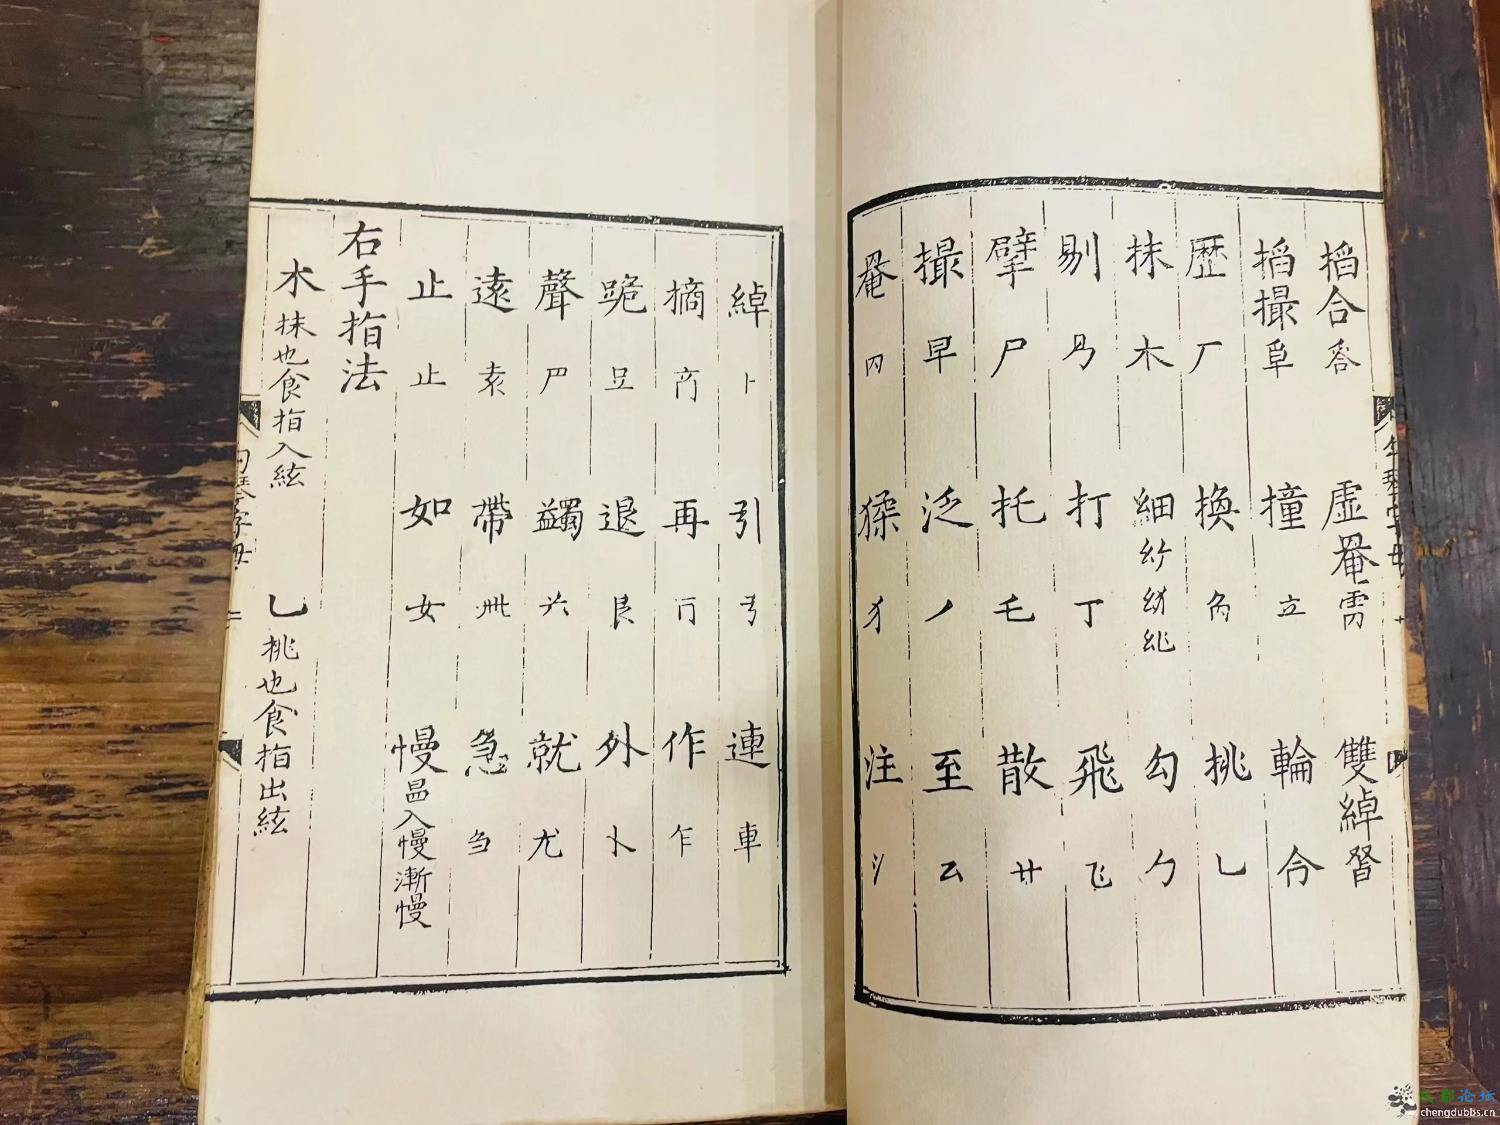 搯合 㕯 虛罨 雭 雙綽
搯撮 撞 立 輪 合
歷 厂 換 奐 挑 乚
抹 木 細 勾 勹
剔 打 丁 飛 飞
擘 尸 托 乇 散 廿
撮 早 泛 丿 至 厶
罨 猱 犭 注 氵
綽 卜 引 弓 連 車
摘 再 作 乍
跪 退 艮 外 卜
聲 尸 蠲 就 尤
遠 袁 帶 卅 急 刍
止 止 如 女 慢 昷入慢漸慢
右手指法
木 抹也食指入絃 乚 挑也食指出絃
chengdubbs.cn